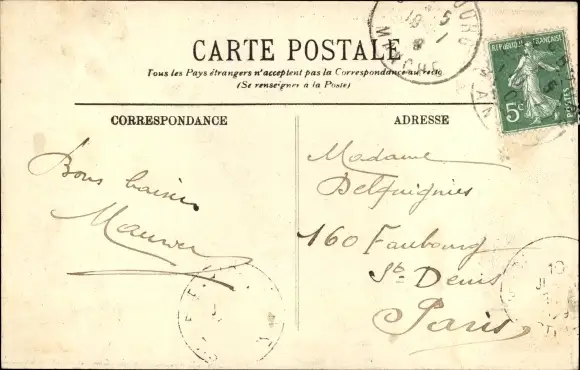 CARTE POSTALE
Tous les Pays étrangers n'acceptent pas la Correspondance au recto
(Se renseigner à la Poste)
CORRESPONDANCE
ADRESSE
Bons baisers
Madame
Delguignies
160 Faubourg
St Denis
Paris
REPUBLIQUE FRANÇAISE
5c
POSTES
MANCHE